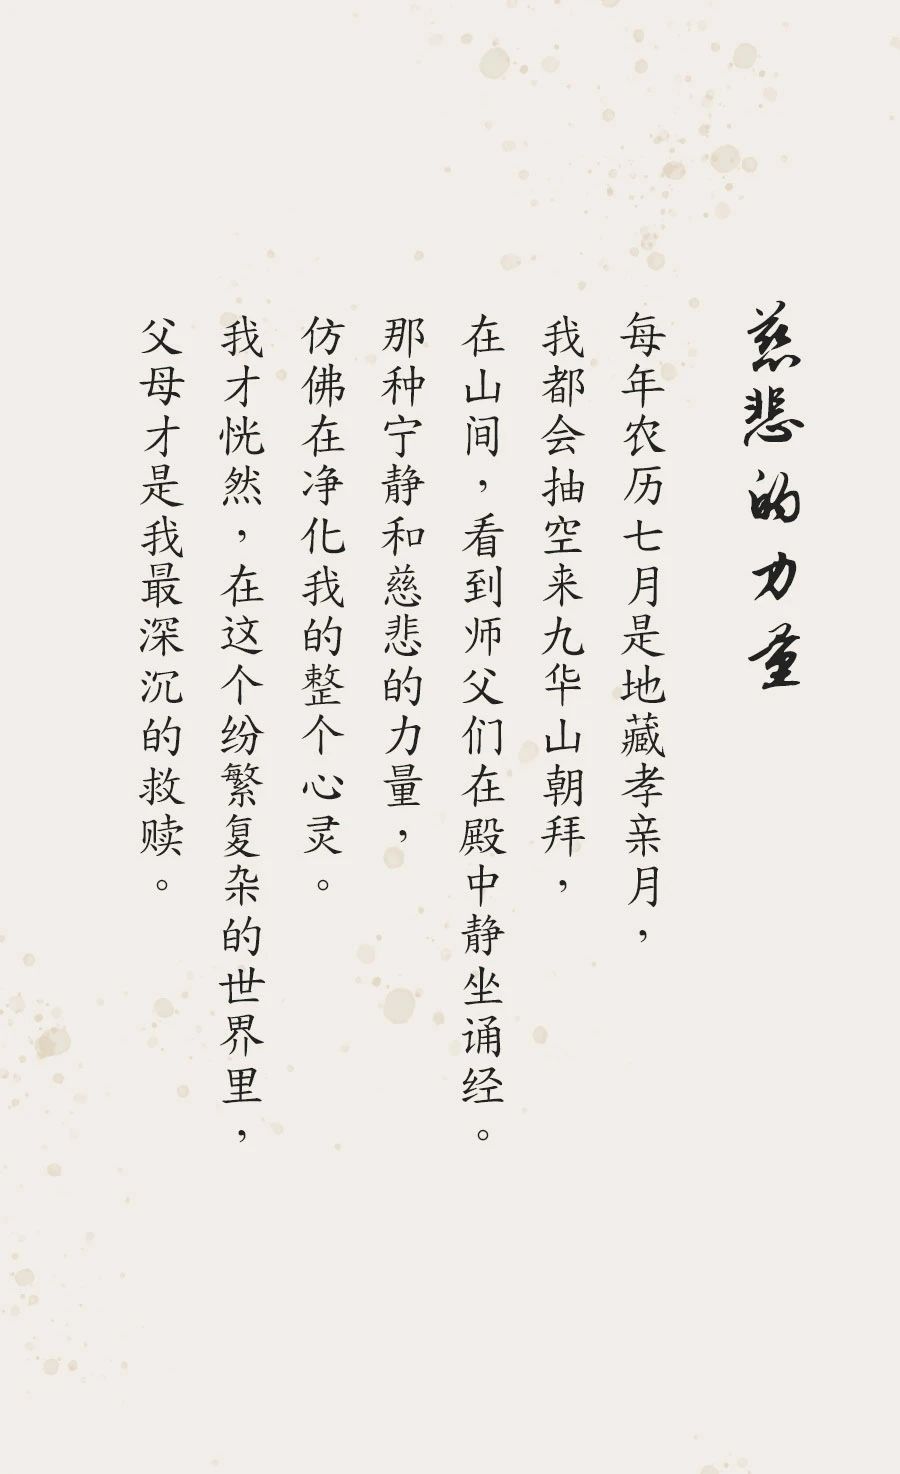 慈悲的力量
每年农历七月是地藏孝亲月，
我都会抽空来九华山朝拜，
在山间，看到师父们在殿中静坐诵经。
那种宁静和慈悲的力量，
仿佛在净化我的整个心灵。
我才恍然，在这个纷繁复杂的世界里，
父母才是我最深沉的救赎。